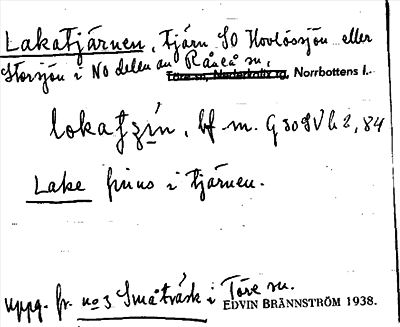 Lakatjärnen, tjärn SO Hovlössjön eller
Storsjön i NO delen av Råneå sn,
Töre sn, Nederkalix tg, Norrbottens l.
bf. m. G 30 S V h 2, 84
Lake finns i tjärnen.
uppg. fr. no 3 Småträsk i Töre sn.
EDVIN BRÄNNSTRÖM 1938.